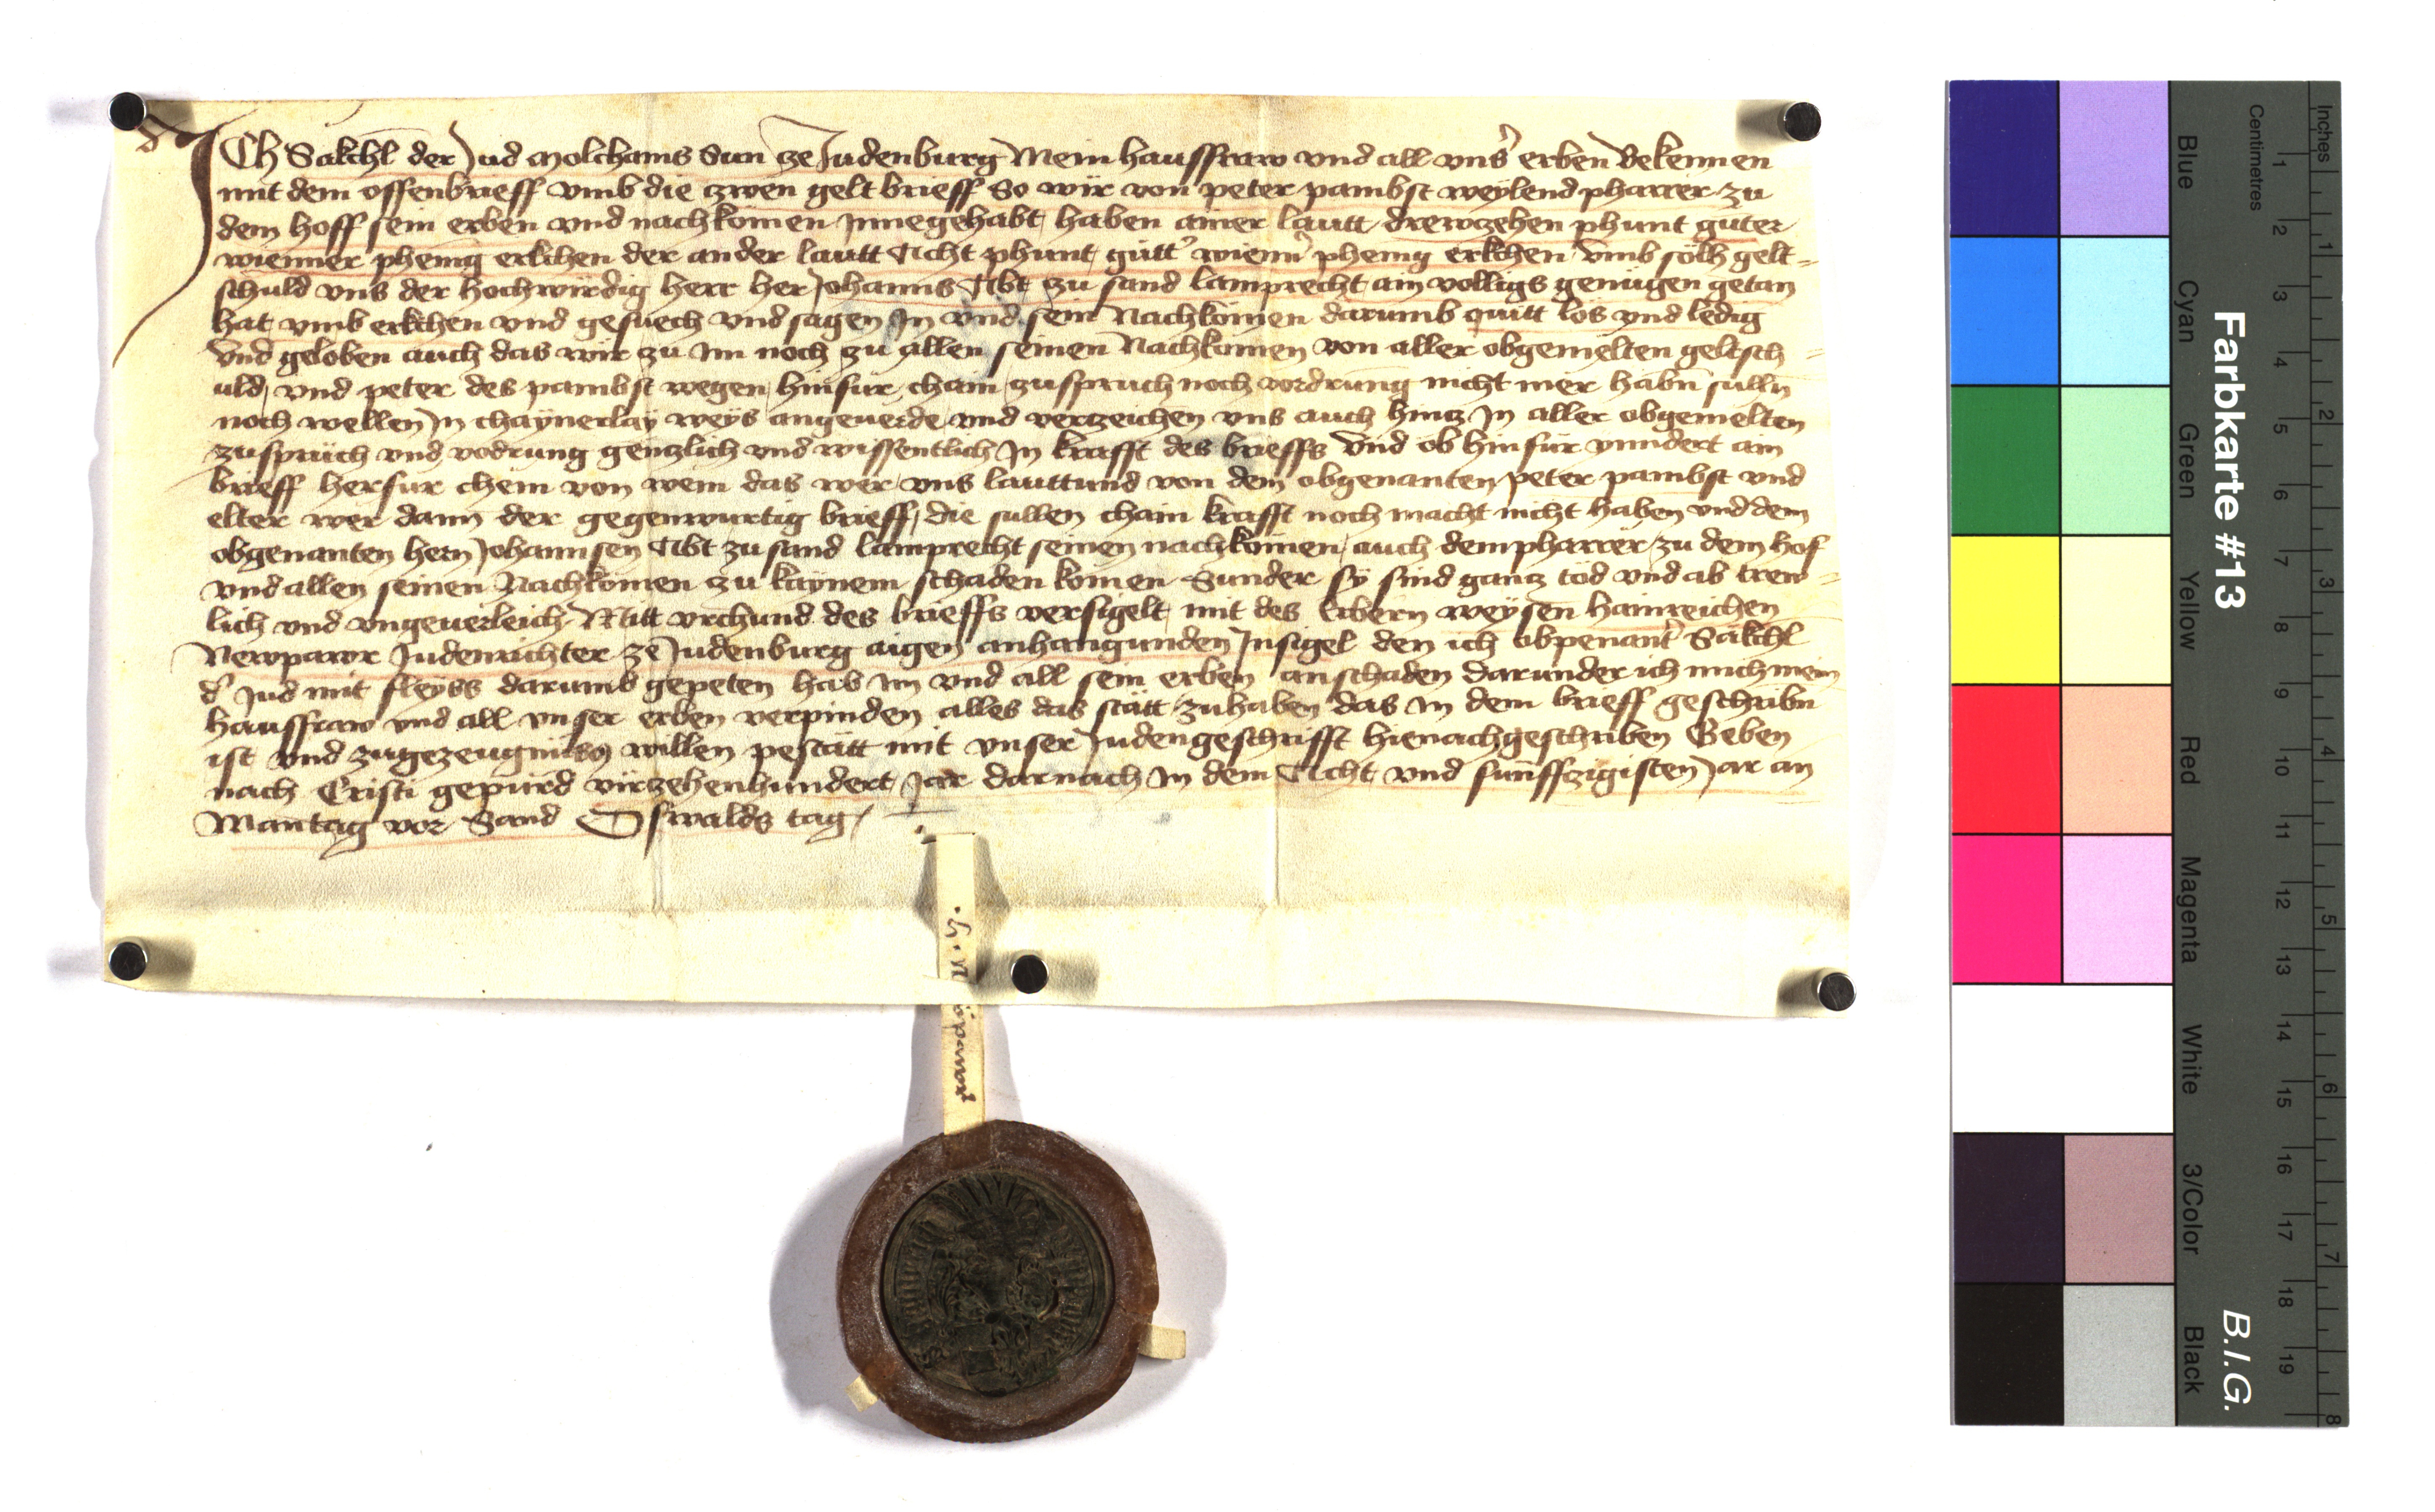 ICh Säkchl der Jud Molchams Sun ze Judenburg Mein hausfraw vnd all vns' erben Bekennen
mit dem offenbrieff vmb die zwen gelt brieff So wir von peter pambst weylend pharrer zu
dem hoff sein erben vnd nachkomen Innegehabt haben ainer lautt drewzehen phunt guter
wienner phenig erkchen der ander lautt Acht phunt gutt' wienn' phenig erkchen vmb sölh gelt-
schuld vns der hochwirdig herr her Johanns Abt zu sand lamprecht ain volligs genügen getan
hat vmb erkchen vnd gesuech vnd sagen In vnd sein Nachkömen darumb quitt lös vnd ledig
Vnd geloben auch das wir zu Im noch zu allen seinen Nachkomen von aller obgemelten geltsch-
uld vnd peter des pambst wegen hinfur chain zuspruch noch vordrung nicht mer habn sulln
noch wellen In chaynerlay weys angeuerde vnd verzeichen vns auch hintz In aller obgemelten
zusprüch vnd vodrung gentzlich vnd wissentlich In krafft des brieffs Vnd ob hinfür ynndert ain
brieff herfur chem von wem das wer vns lauttund von dem obgenanten peter pambst vnd
elter wer dann der gegenwurtig brieff die sullen chain krafft noch macht nicht haben vnd dem
obgenanten hern Johannsen Abt zu sand lamprecht seinen nachkömen auch dem pharrer zu dem hof
vnd allen seinen Nachkömen zu kaynem schaden komen Sunder sy sind gantz töd vnd ab trew-
lich vnd vngeuerleich Mitt vrchund des brieffs versigelt mit des Erbern weysen hainreichen
Newpawr Judenrichter ze Judenburg aigen anhangunden Insigel den ich obpenant' Säkchl
d' Jud mit fleyss darumb gepeten hab Im vnd all sein erben an schaden darunder ich mich mein
hausfraw vnd all vnser erben verpinden alles das stätt zuhaben das In dem brieff geschribn
ist vnd zugezeugnüss willen pestätt mit vnser Judengeschrifft hienachgeschriben Geben
nach Cristi gepurd virzehenhundert Jar darnach In dem Acht vnd funffzigisten Jar an
Mantag vor Sand Oswalds tag
Farbkarte #13
B.I.G.
Blue
Cyan
Green
Yellow
Red
Magenta
White
3/Color
Black
Centimetres
1 2 3 4 5 6 7 8 9 10 11 12 13 14 15 16 17 18 19
Inches
1 2 3 4 5 6 7 8